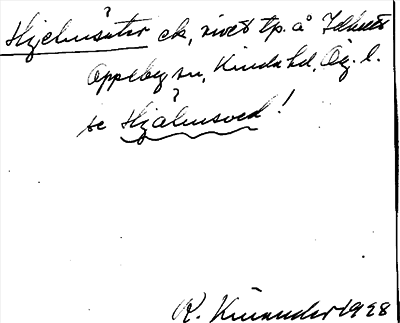 Hjelmsäter ek, rivet tp. å Idhult
Oppeby sn, Kinda hd, Ög. l.
se Hjälmsved!
R. Kinander 1928